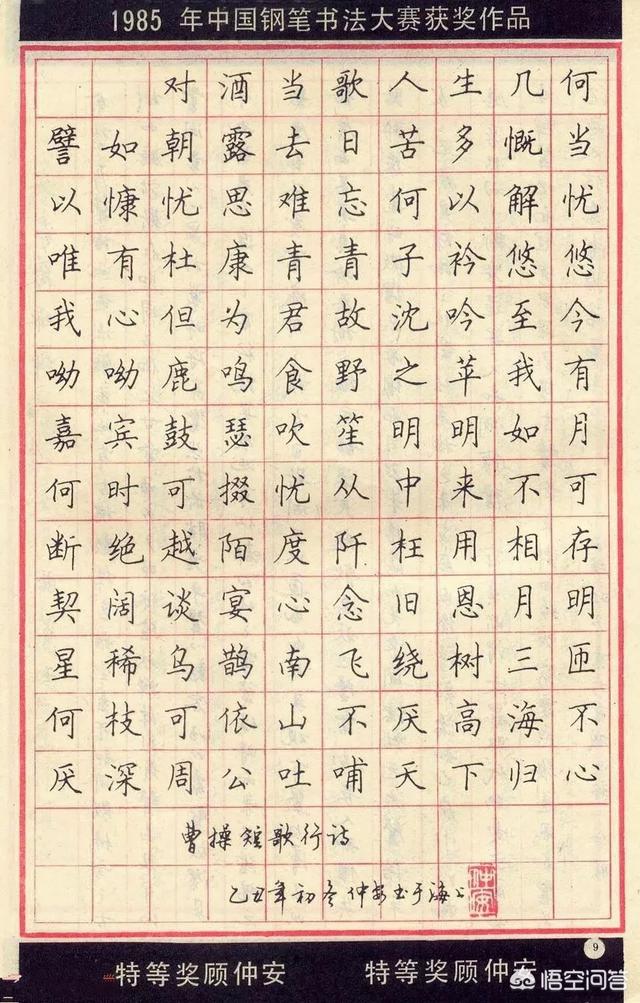 1985 年中国钢笔书法大赛获奖作品
对酒当歌人生几何
譬如朝露去日苦多慨当
以慷忧思难忘何以解忧
唯有杜康青青子衿悠悠
我心但为君故沈吟至今
呦呦鹿鸣食野之苹我有
嘉宾鼓瑟吹笙明明如月
何时可掇忧从中来不可
断绝越陌度阡枉用相存
契阔谈宴心念旧恩月明
星稀乌鹊南飞绕树三匝
何枝可依山不厌高海不
厌深周公吐哺天下归心
曹操短歌行诗
乙丑年初冬仲安书于海上
仲安
9
特等奖顾仲安 特等奖顾仲安
悟空问答